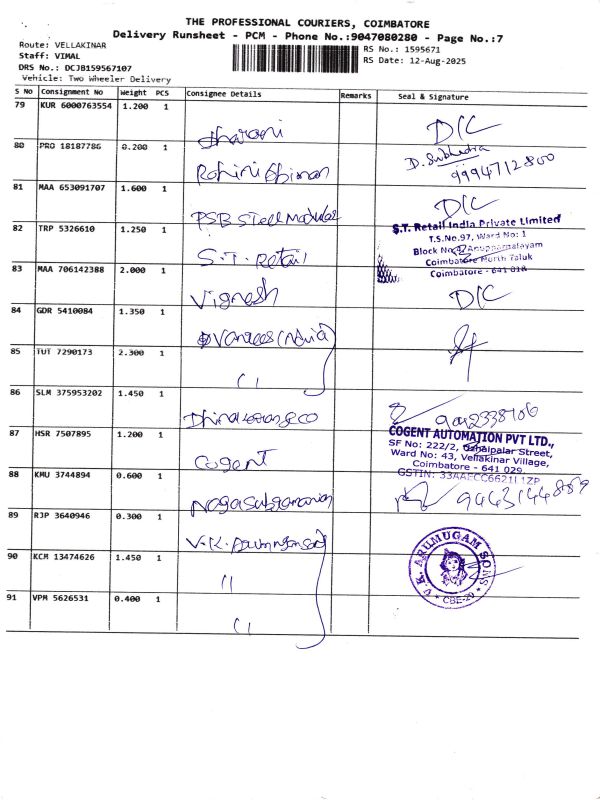 THE PROFESSIONAL COURIERS, COIMBATORE
Delivery Runsheet - PCM - Phone No.:9047080280 - Page No.:7
Route: VELLAKINAR
RS No.: 1595671
Staff: VIMAL
RS Date: 12-Aug-2025
DRS No.: DCJB159567107
Vehicle: Two Wheeler Delivery
S No Consignment No Weight PCS Consignee Details Remarks Seal & Signature
79 KUR 6000763554 1.200 1
Dharani D/C
80 PRO 18187786 0.200 1
D. Subhadra
Rohini Abiman 9994712800
81 MAA 653091707 1.600 1
PSB Steel Modules D/C
82 TRP 5326610 1.250 1
S.T. Retail India Private Limited
T.S.No.97, Ward No: 1
S.T. Retail
Coimbatore North Taluk
Coimbatore - 641 018
83 MAA 706142388 2.000 1
Vignesh D/C
84 GDR 5410084 1.350 1
(India)
85 TUT 7290173 2.300 1
"
86 SLM 375953202 1.450 1
87 HSR 7507895 1.200 1
COGENT AUTOMATION PVT LTD.,
SF No: 222/2,
Ward No: 43, Vellakinar Village,
Cogent
Coimbatore - 641 029.
88 KMU 3744894 0.600 1
Nagasubramanian
89 RJP 3640946 0.300 1
V.K.
V.K. ARUMUGAM SONS
* CBE-29 *
90 KCM 13474626 1.450 1
"
91 VPM 5626531 0.400 1
"